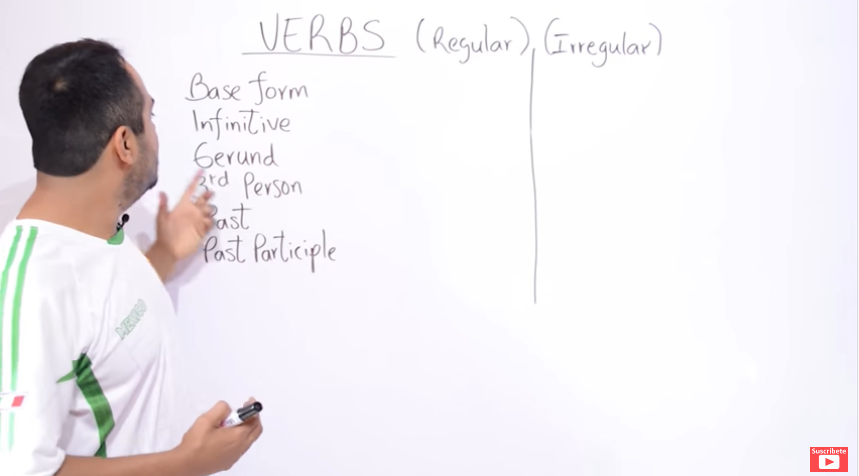 VERBS (Regular), (Irregular)
Base form
Infinitive
Gerund
3rd Person
Past
Past Participle
MEXICO
Suscríbete